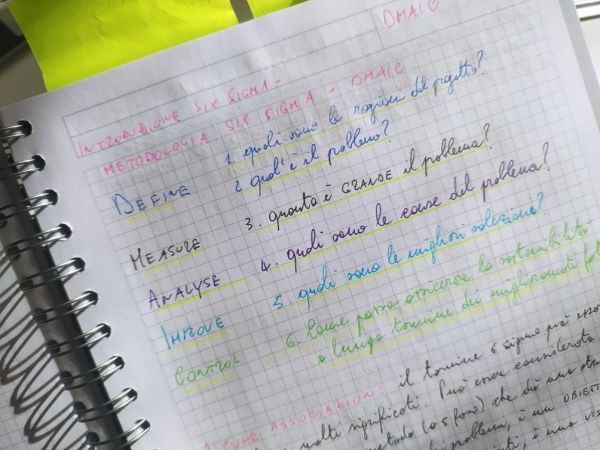 DMAIC
INTRODUZIONE SIX SIGMA -
METODOLOGIA SIX SIGMA - DMAIC
DEFINE 1. quali sono le ragioni del progetto?
2 qual'è il problema?
MEASURE 3. quanto è GRANDE il problema?
ANALYSE 4. quali sono le cause del problema?
IMPROVE 5. quali sono le migliori soluzioni?
CONTROL 6. Come posso assicurare la sostenibilità
a lungo termine dei miglioramenti
ASSOCIATION: il termine 6 sigma può
molti significati. Può essere considerato
metodo (a 5 fasi) che dà una
problema, è un